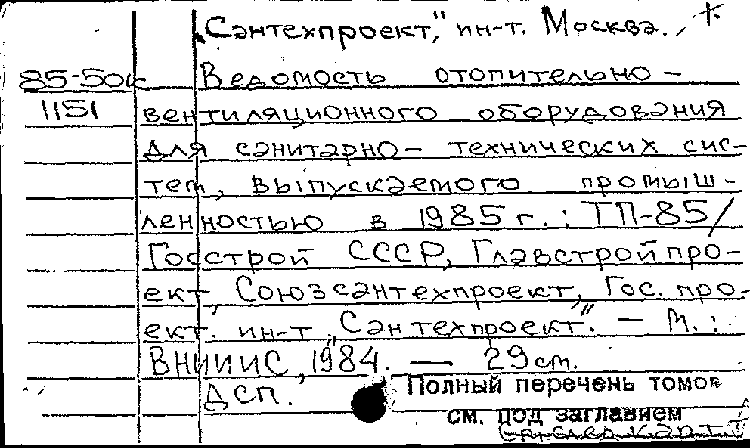 „Сантехпроект,” ин-т. Москва.
85-50к Ведомость отопительно-
1151 вентиляционного оборудования
для санитарно-технических сис-
тем, выпускаемого промыш-
ленностью в 1985 г.: ТП-85/
Госстрой СССР, Главстройпро-
ект, Союзсантехпроект, Гос. про-
ект. ин-т „Сантехпроект”. — М.:
ВНИИИС, 1984. — 29 см.
ДСП. Полный перечень томов
см. под заглавием